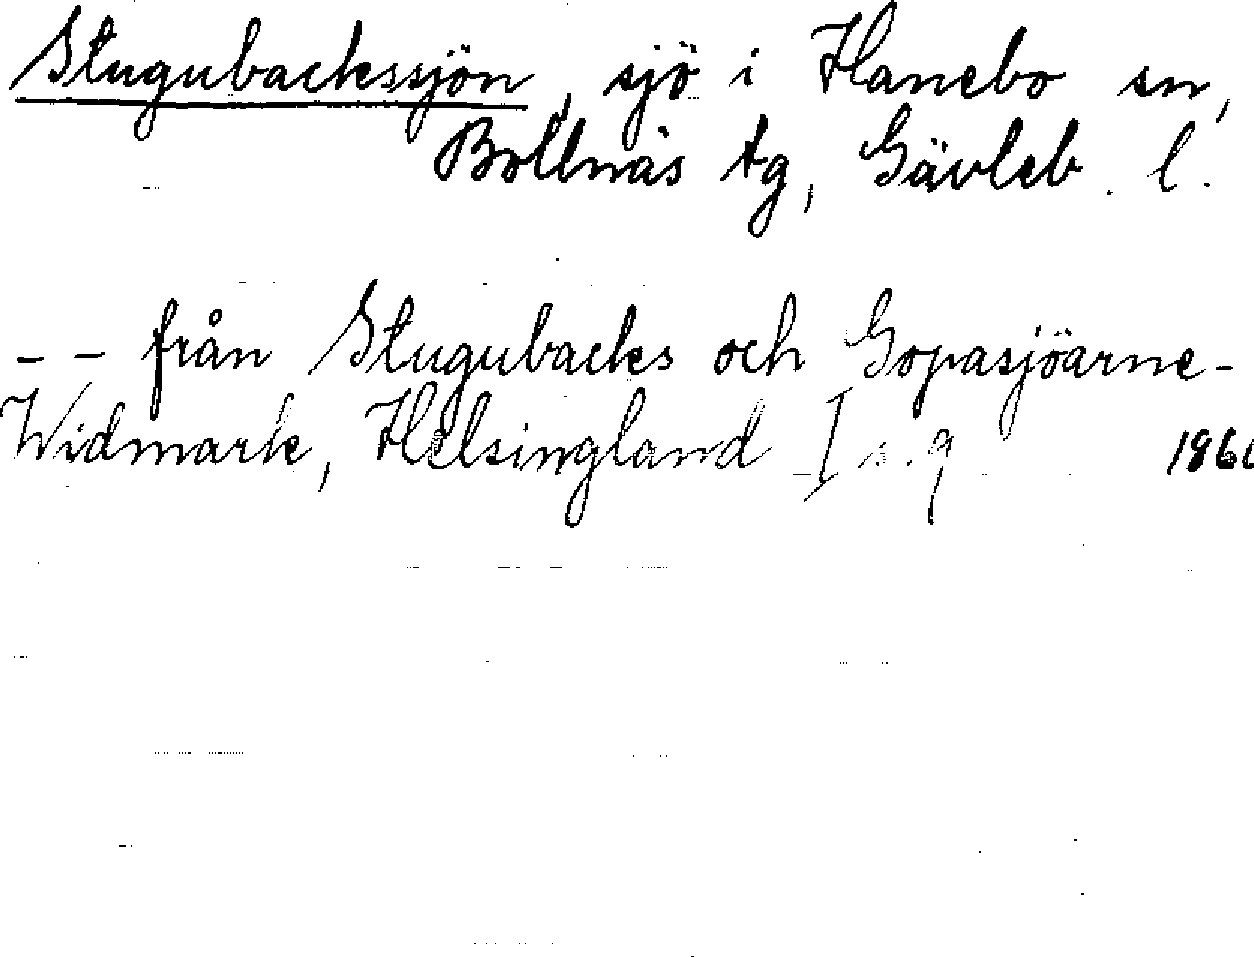 Stugubackssjön, sjö i Hanebo sn,
Bollnäs tg, Gävleb. l.
-- från Stugubacks och Gopasjöarne-
Widmark, Helsingland I s. 9 1860